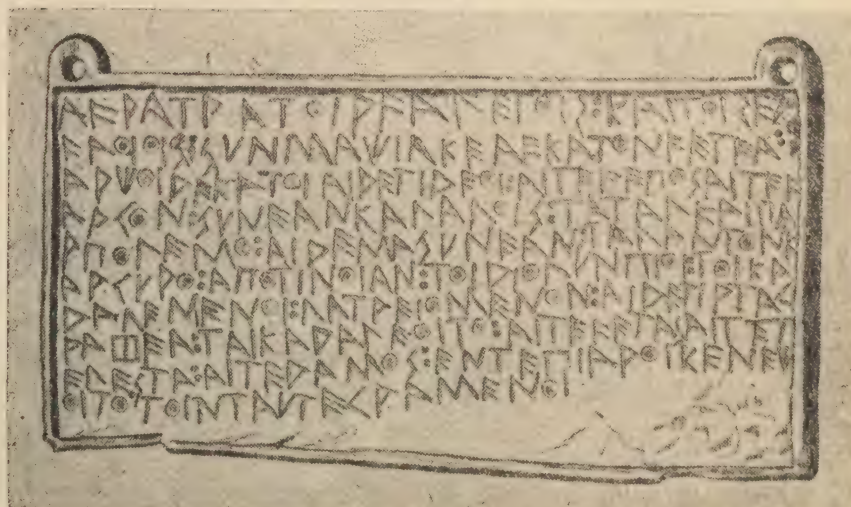 ΑϜΡΑΤΡΑΤΟΙΡϜΑΛΕΙΟΙΣ:ΚΑΙΤΟΙΣΕΥ
ϜΑΟΙΟΙΣ:ΣΥΝΜΑΨΙΑΚΕΑΕΚΑΤΟΝϜΕΤΕΑ:
ΑΡΨΟΙΔΕΚΑΤΟΙΑΙΔΕΤΙΔΕΟΙ:ΑΙΤΕϜΕΠΟΣΑΙΤΕϜ
ΑΡΓΟΝ:ΣΥΝΕΑΝΚΑΛΑΛΟΙΣ:ΤΑΤΑΛΕΑΙΠΑ
ΡΠΟΛΕΜΟ:ΑΙΔΕΜΑΣΥΝΕΑΝΤΑΛΑΝΤΟΝΚ
ΑΡΓΥΡΟ:ΑΠΟΤΙΝΟΙΑΝ:ΤΟΙΔΙΟΛΥΝΠΙΟΙΤΟΙΚΑ
ΔΑΛΕΜΕΝΟΙ:ΛΑΤΡΕΙΟΜΕΝΟΝ:ΑΙΔΕΤΙΡΤΑΓ
ΡΑΦΕΑ:ΤΑΙΚΑΔΑΛΕΟΙΤΟ:ΑΙΤΕϜΕΤΑΣΑΙΤΕΤ
ΕΛΕΣΤΑ:ΑΙΤΕΔΑΜΟΣ:ΕΝΤΕΠΙΑΡΟΙΚΕΝΕΨ
ΟΙΤΟ:ΤΟΙΝΤΑΥΤΕΓΡΑΜΕΝΟΙ